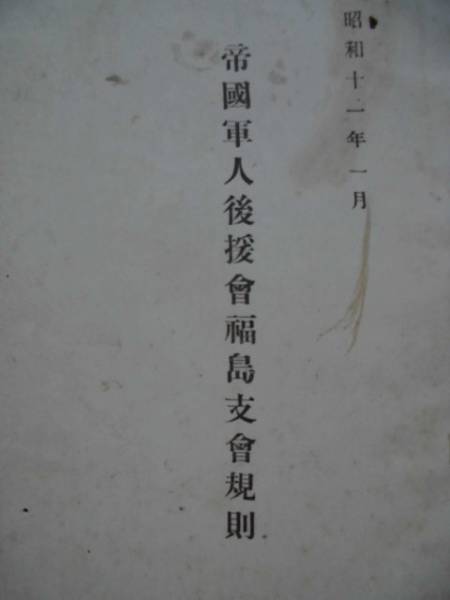 昭和十一年一月
帝國軍人後援會福島支會規則